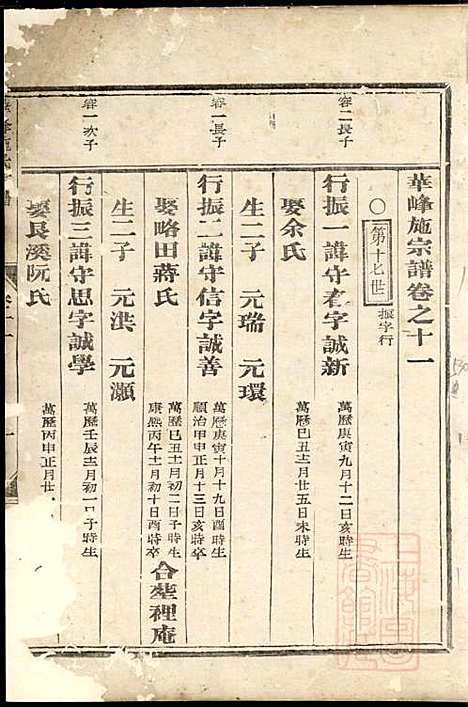 華峰施宗譜卷之十一
○第十七世 振字行
容二長子
行振一諱守者字誠新 萬曆庚寅九月十二日亥時生
娶余氏 萬曆己丑十二月廿五日未時生
生二子 元瑞 元環
容一長子
行振二諱守信字誠善 萬曆庚寅十月十九日酉時生
順治甲申正月十三日亥時卒
娶略田蔣氏 萬曆己丑十月初二日子時生
康熙丙午十二月初十日酉時卒 合塟裡庵
生二子 元洪 元瀬
容一次子
行振三諱守思字誠學 萬曆壬辰十二月初一日子時生
娶良溪阮氏 萬曆丙申正月廿